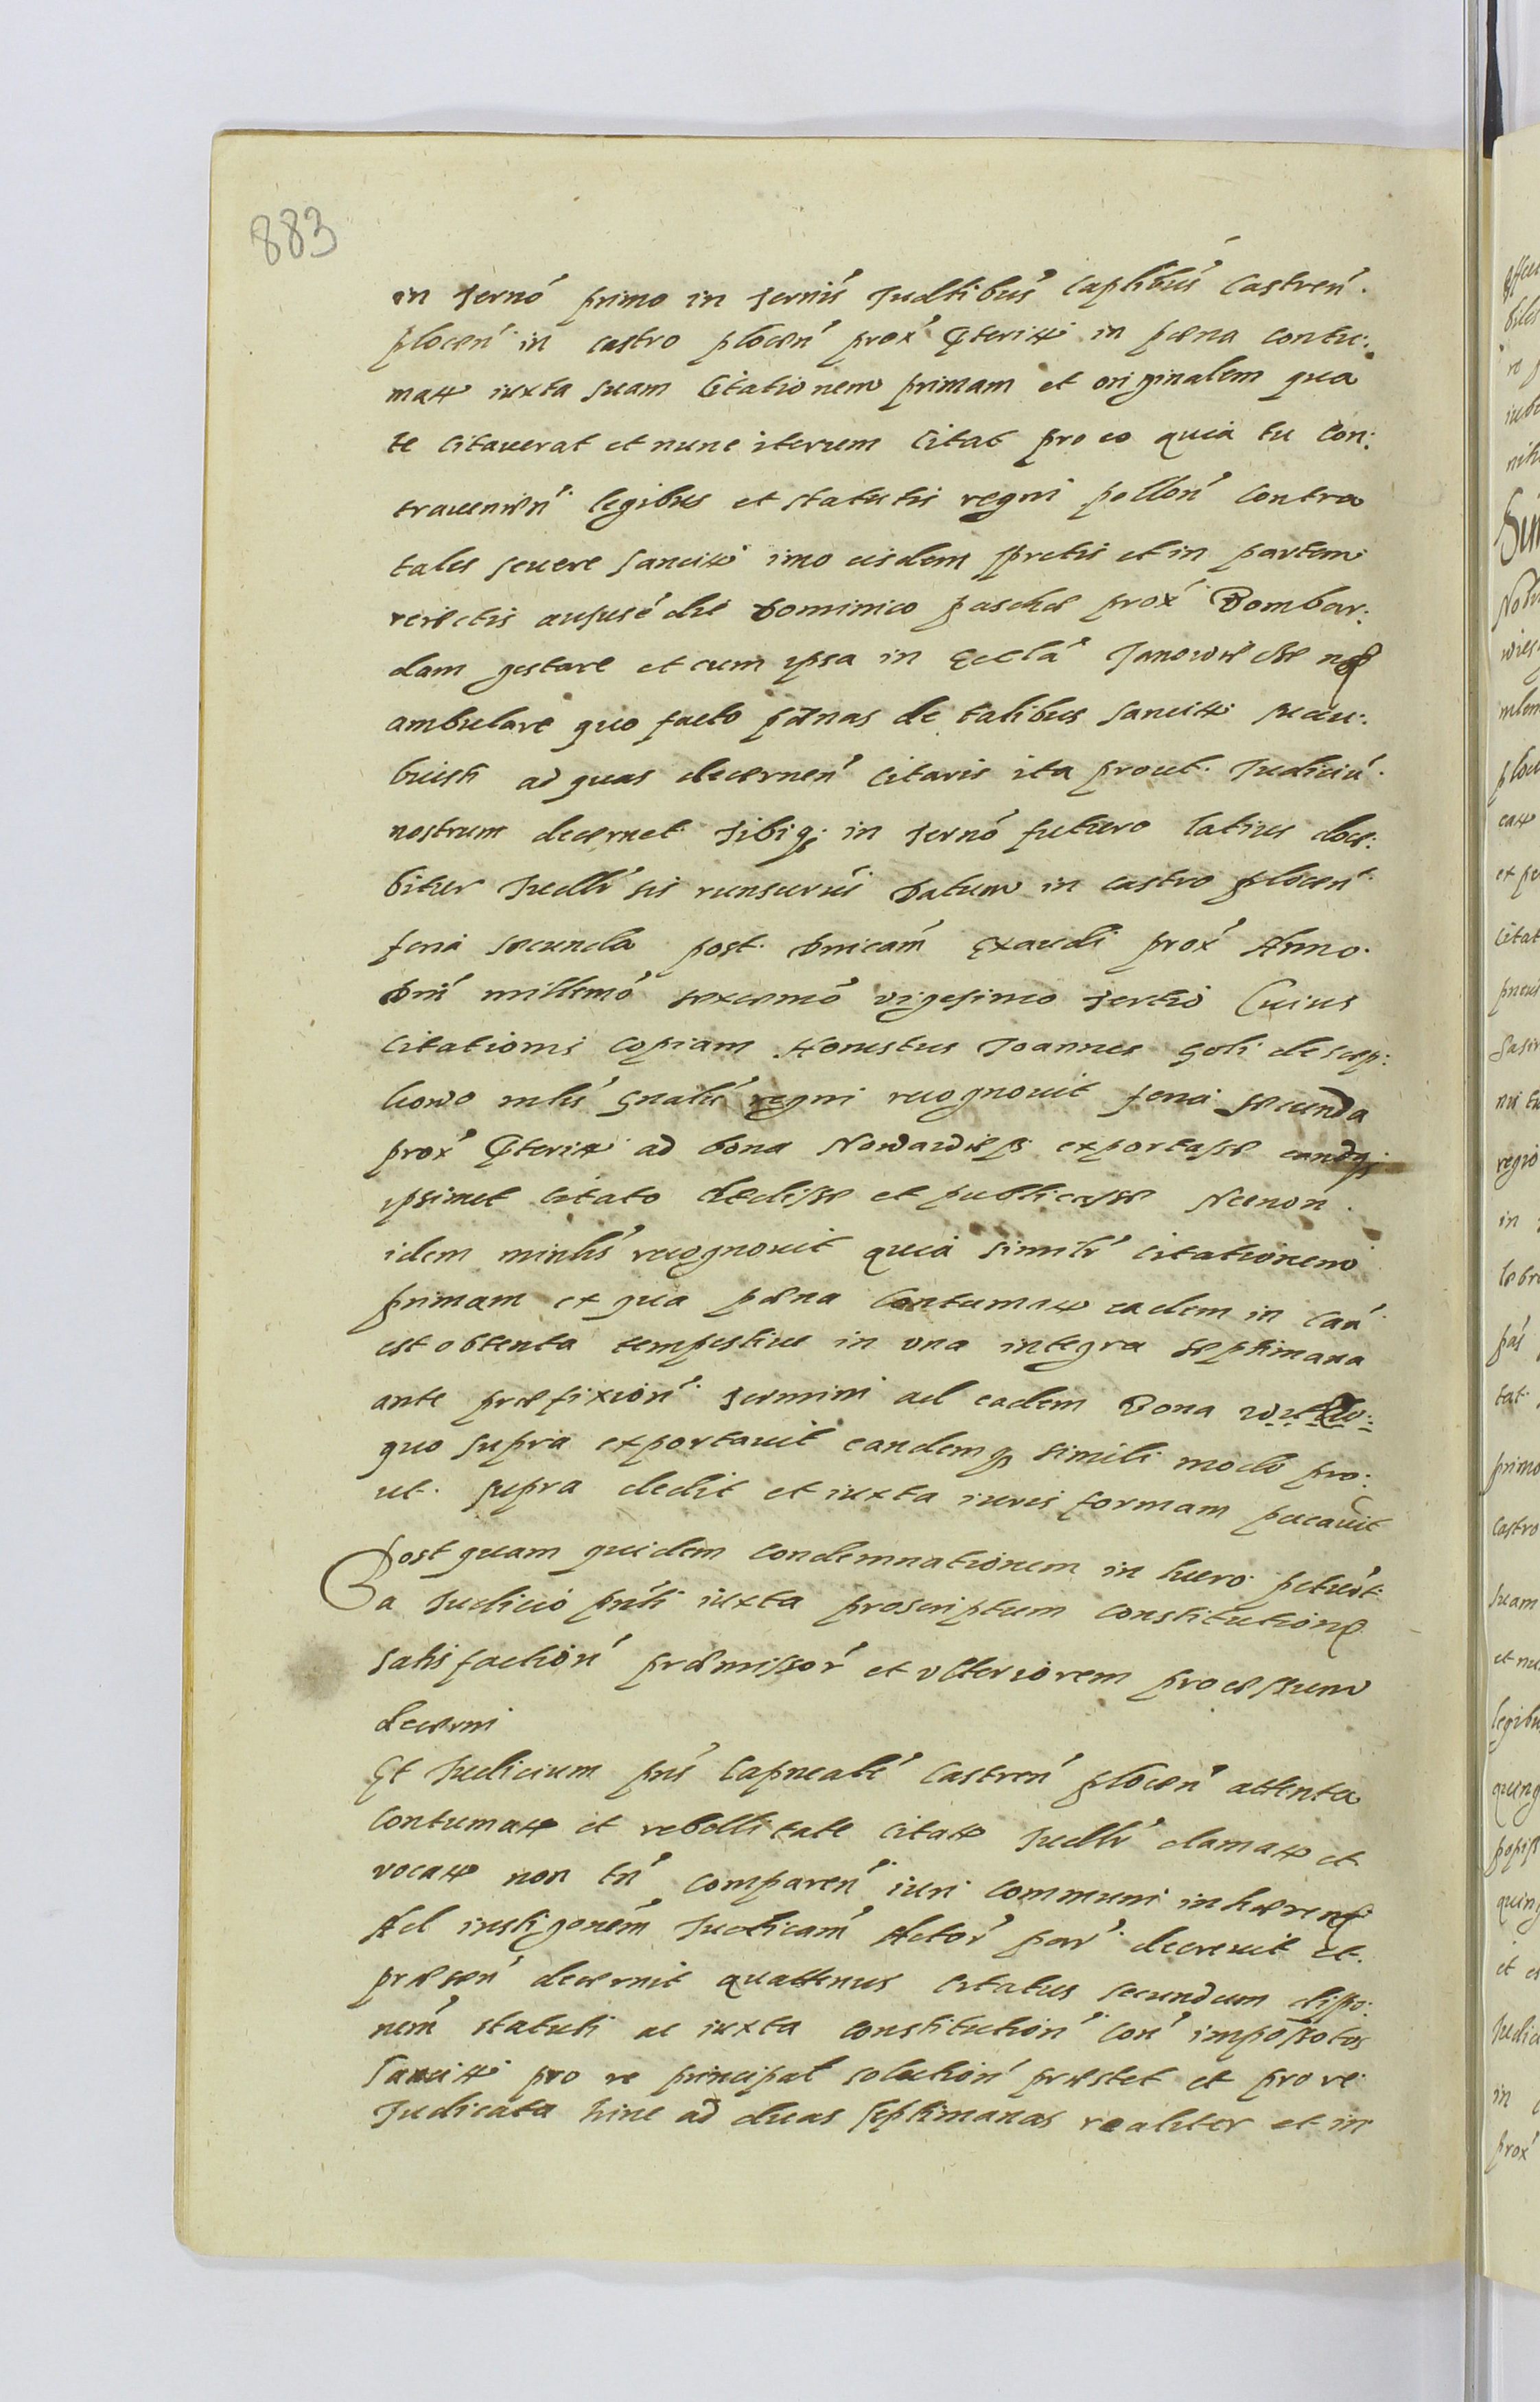 883
in termo primo in termis Judlibus Caplibus Castren.
plocen in castro plocen prox pterit in pœna contu:
mat iuxta suam Citationem primam et originalem qua
te citauerat et nunc iterum Citat pro eo quia tu Con:
trauenien legibus et statutis regni pollon Contra
tales seuere sancit imo eisdem spretis et in partem
reiectis ausus e die Dominico paschæ prox Bombar:
dam gestare et cum ipsa in Eccla
ambulare quo facto pœnas de talibus sancit succu:
buisti ad quas decernen Citaris ita prout Judiciu.
nostrum decernet tibiq in termo futuro latius doce:
bitur Judlr sis runsurus Datum in castro plocen
feria secunda post Dnicam Exaudi prox Anno.
Dni millemo sexcemo vigesimo tertio Cuius
Citationis copiam Honestus Joannes de
mlis Gnalis regni recognouit feria secunda
prox pterit ad bona exportasse eandq
ipsimet Citato dedisse et publicasse Necnon.
idem minlis recognouit quia similr Citationem
primam ex qua pœna Contumat eadem in Cau
est obtenta tempestiue in vna integra septimana
ante præfixion termini ad eadem Bona
quo supra exportauit eandemq simili modo pro:
ut. supra dedit et iuxta iuris formam pucauit
Post quam quidem Condemnationem in lucro petiuit
a Judicio pnti iuxta proscriptum Constitution
satisfaction præmissor et vlteriorem processum
decerni
Et Judicium pns Capneale Castren plocen attenta
Contumat et rebellitate Citat Judlr clamat et
vocat non tn Comparen iuri Communi inhæren
Ad instigonem Judicam Actor par decreuit et.
præsen decernit quattenus Citatus secundum dispo:
nem statuti ac iuxta Constitution Con impossotos
Sancit pro re principal solution præstet et pro re
Judicata hinc ad duas septimanas realiter et in